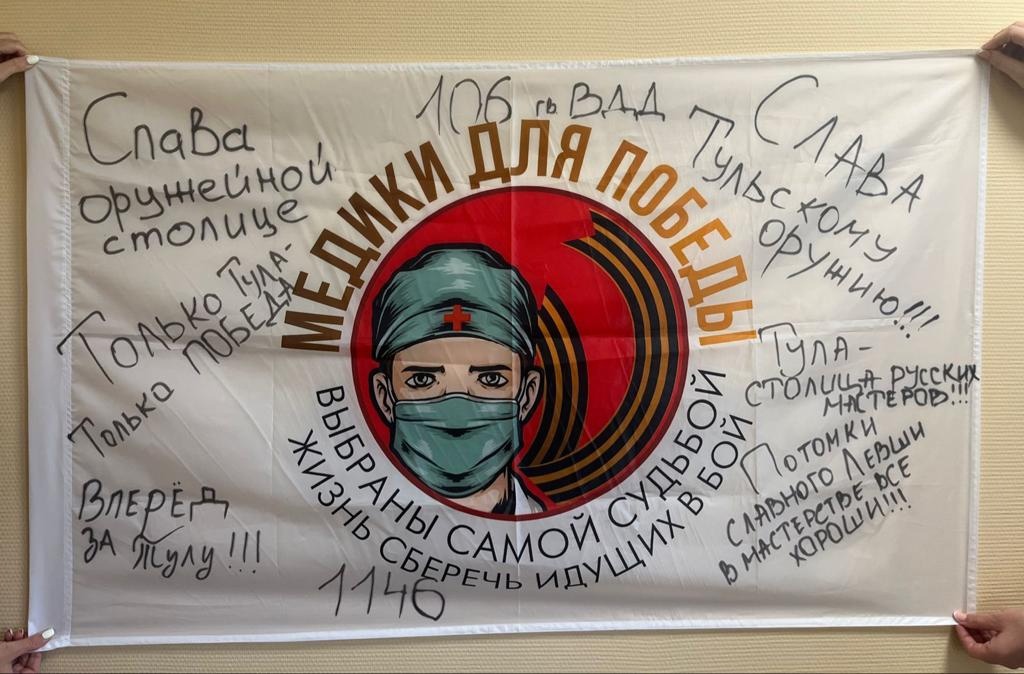 Слава
оружейной
столице
106 гв ВДД
СЛАВА
Тульскому
оружию!!!
МЕДИКИ ДЛЯ ПОБЕДЫ
Только Тула-
Только ПОБЕДА
Тула-
СТОЛИЦА РУССКИХ
МАСТЕРОВ!!!
ВЫБРАНЫ САМОЙ СУДЬБОЙ
ЖИЗНЬ СБЕРЕЧЬ ИДУЩИХ В БОЙ
Вперёд
ЗА Тулу!!!
Потомки
СЛАВНОГО ЛЕВШИ
В МАСТЕРСТВЕ ВСЕ
ХОРОШИ!!!
1146